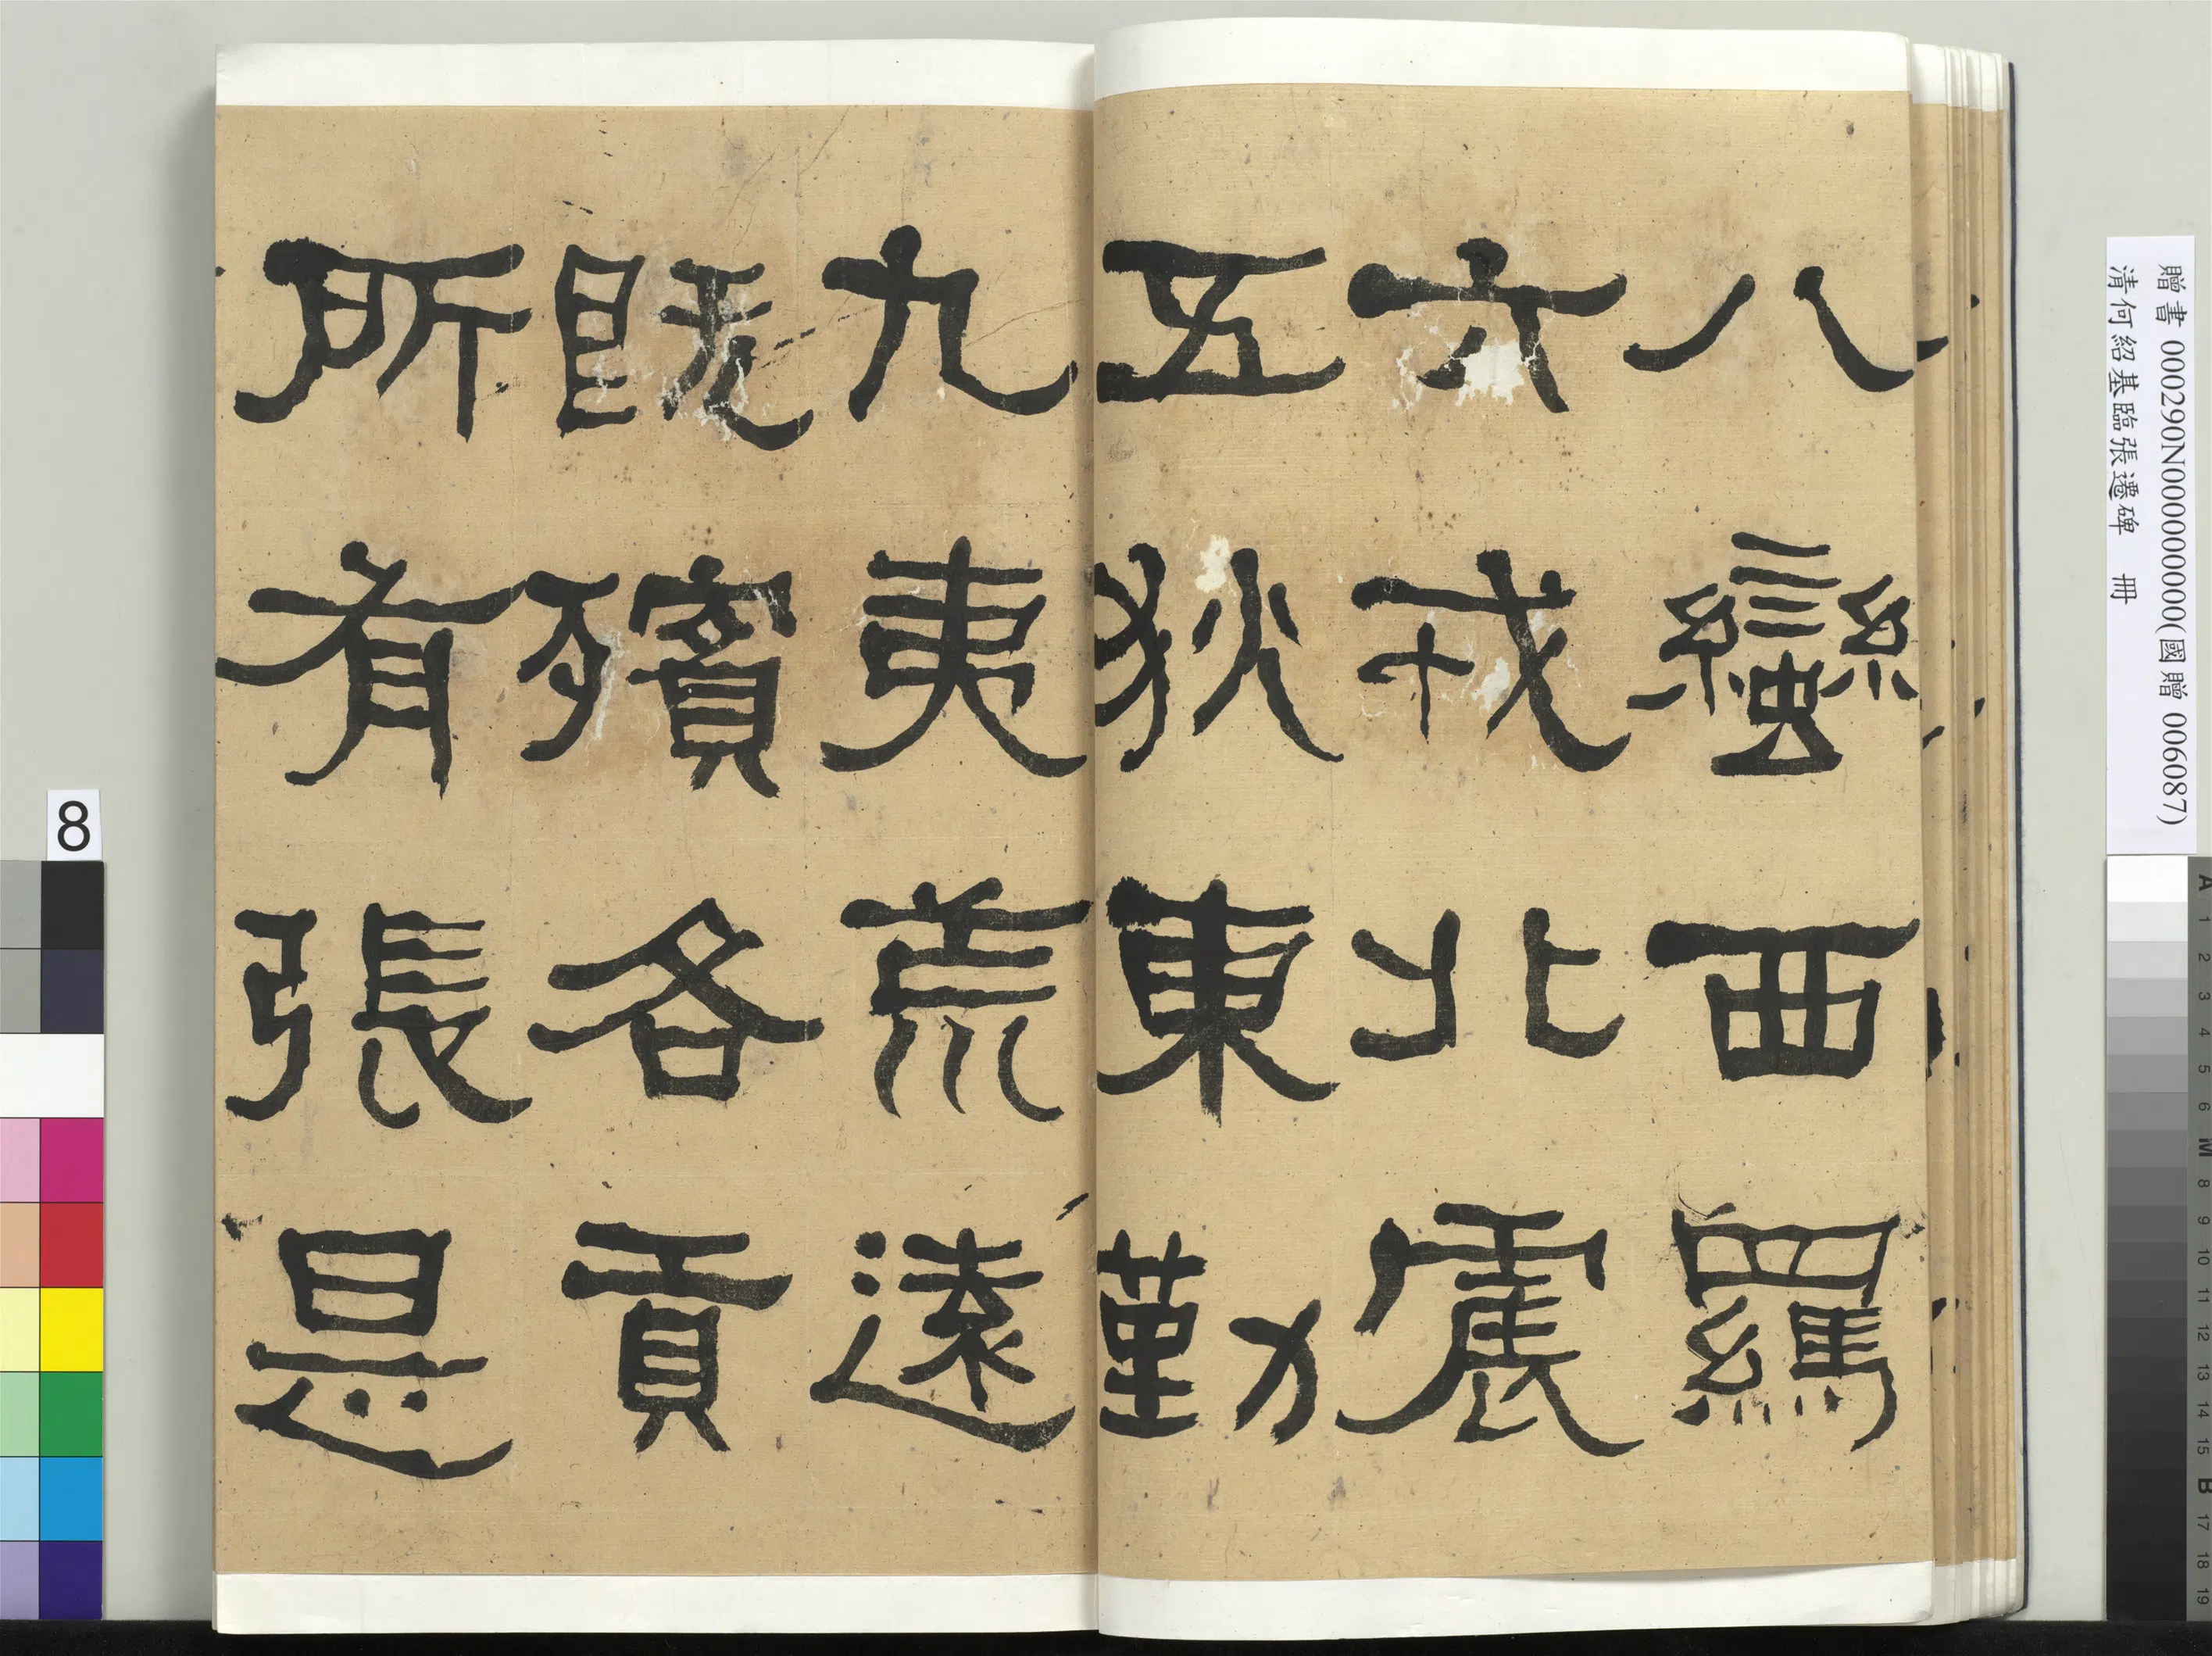 八蠻西羈
六戎北震
五狄東勤
九夷荒遠
既殯各貢
所有張是
贈書 000290N000000000(國贈 006087)
清何紹基臨張遷碑 冊
8
A 1 2 3 4 5 6 M 8 9 10 11 12 13 14 15 B 17 18 19